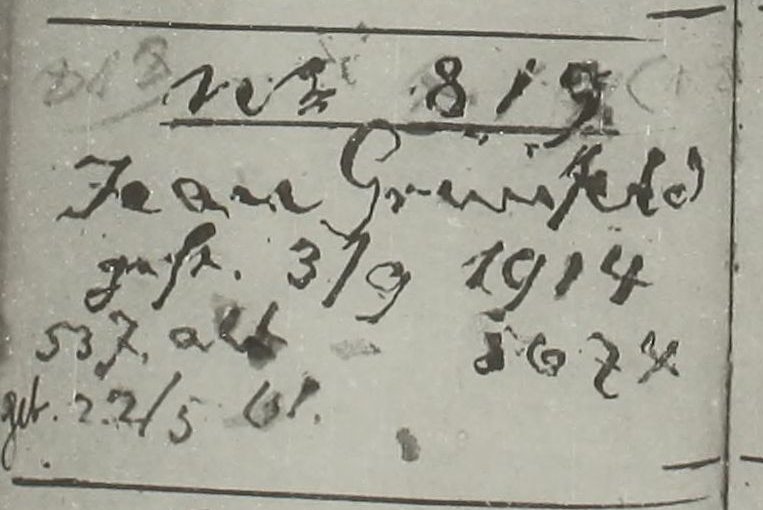 № 819
Isaac Grünfeld
gest. 3/9 1914
53 J. alt 5674
geb. 22/5 61.